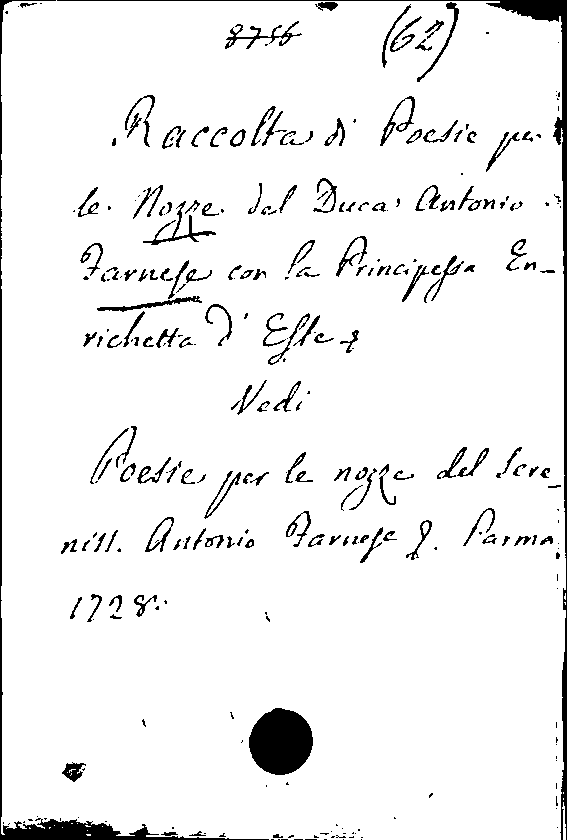 8756 (62)
Raccolta di Poesie per
le Nozze del Duca Antonio
Farnese con la Principessa En-
richetta d' Este &
Vedi
Poesie per le nozze del Sere-
niss. Antonio Farnese &. Parma
1728.